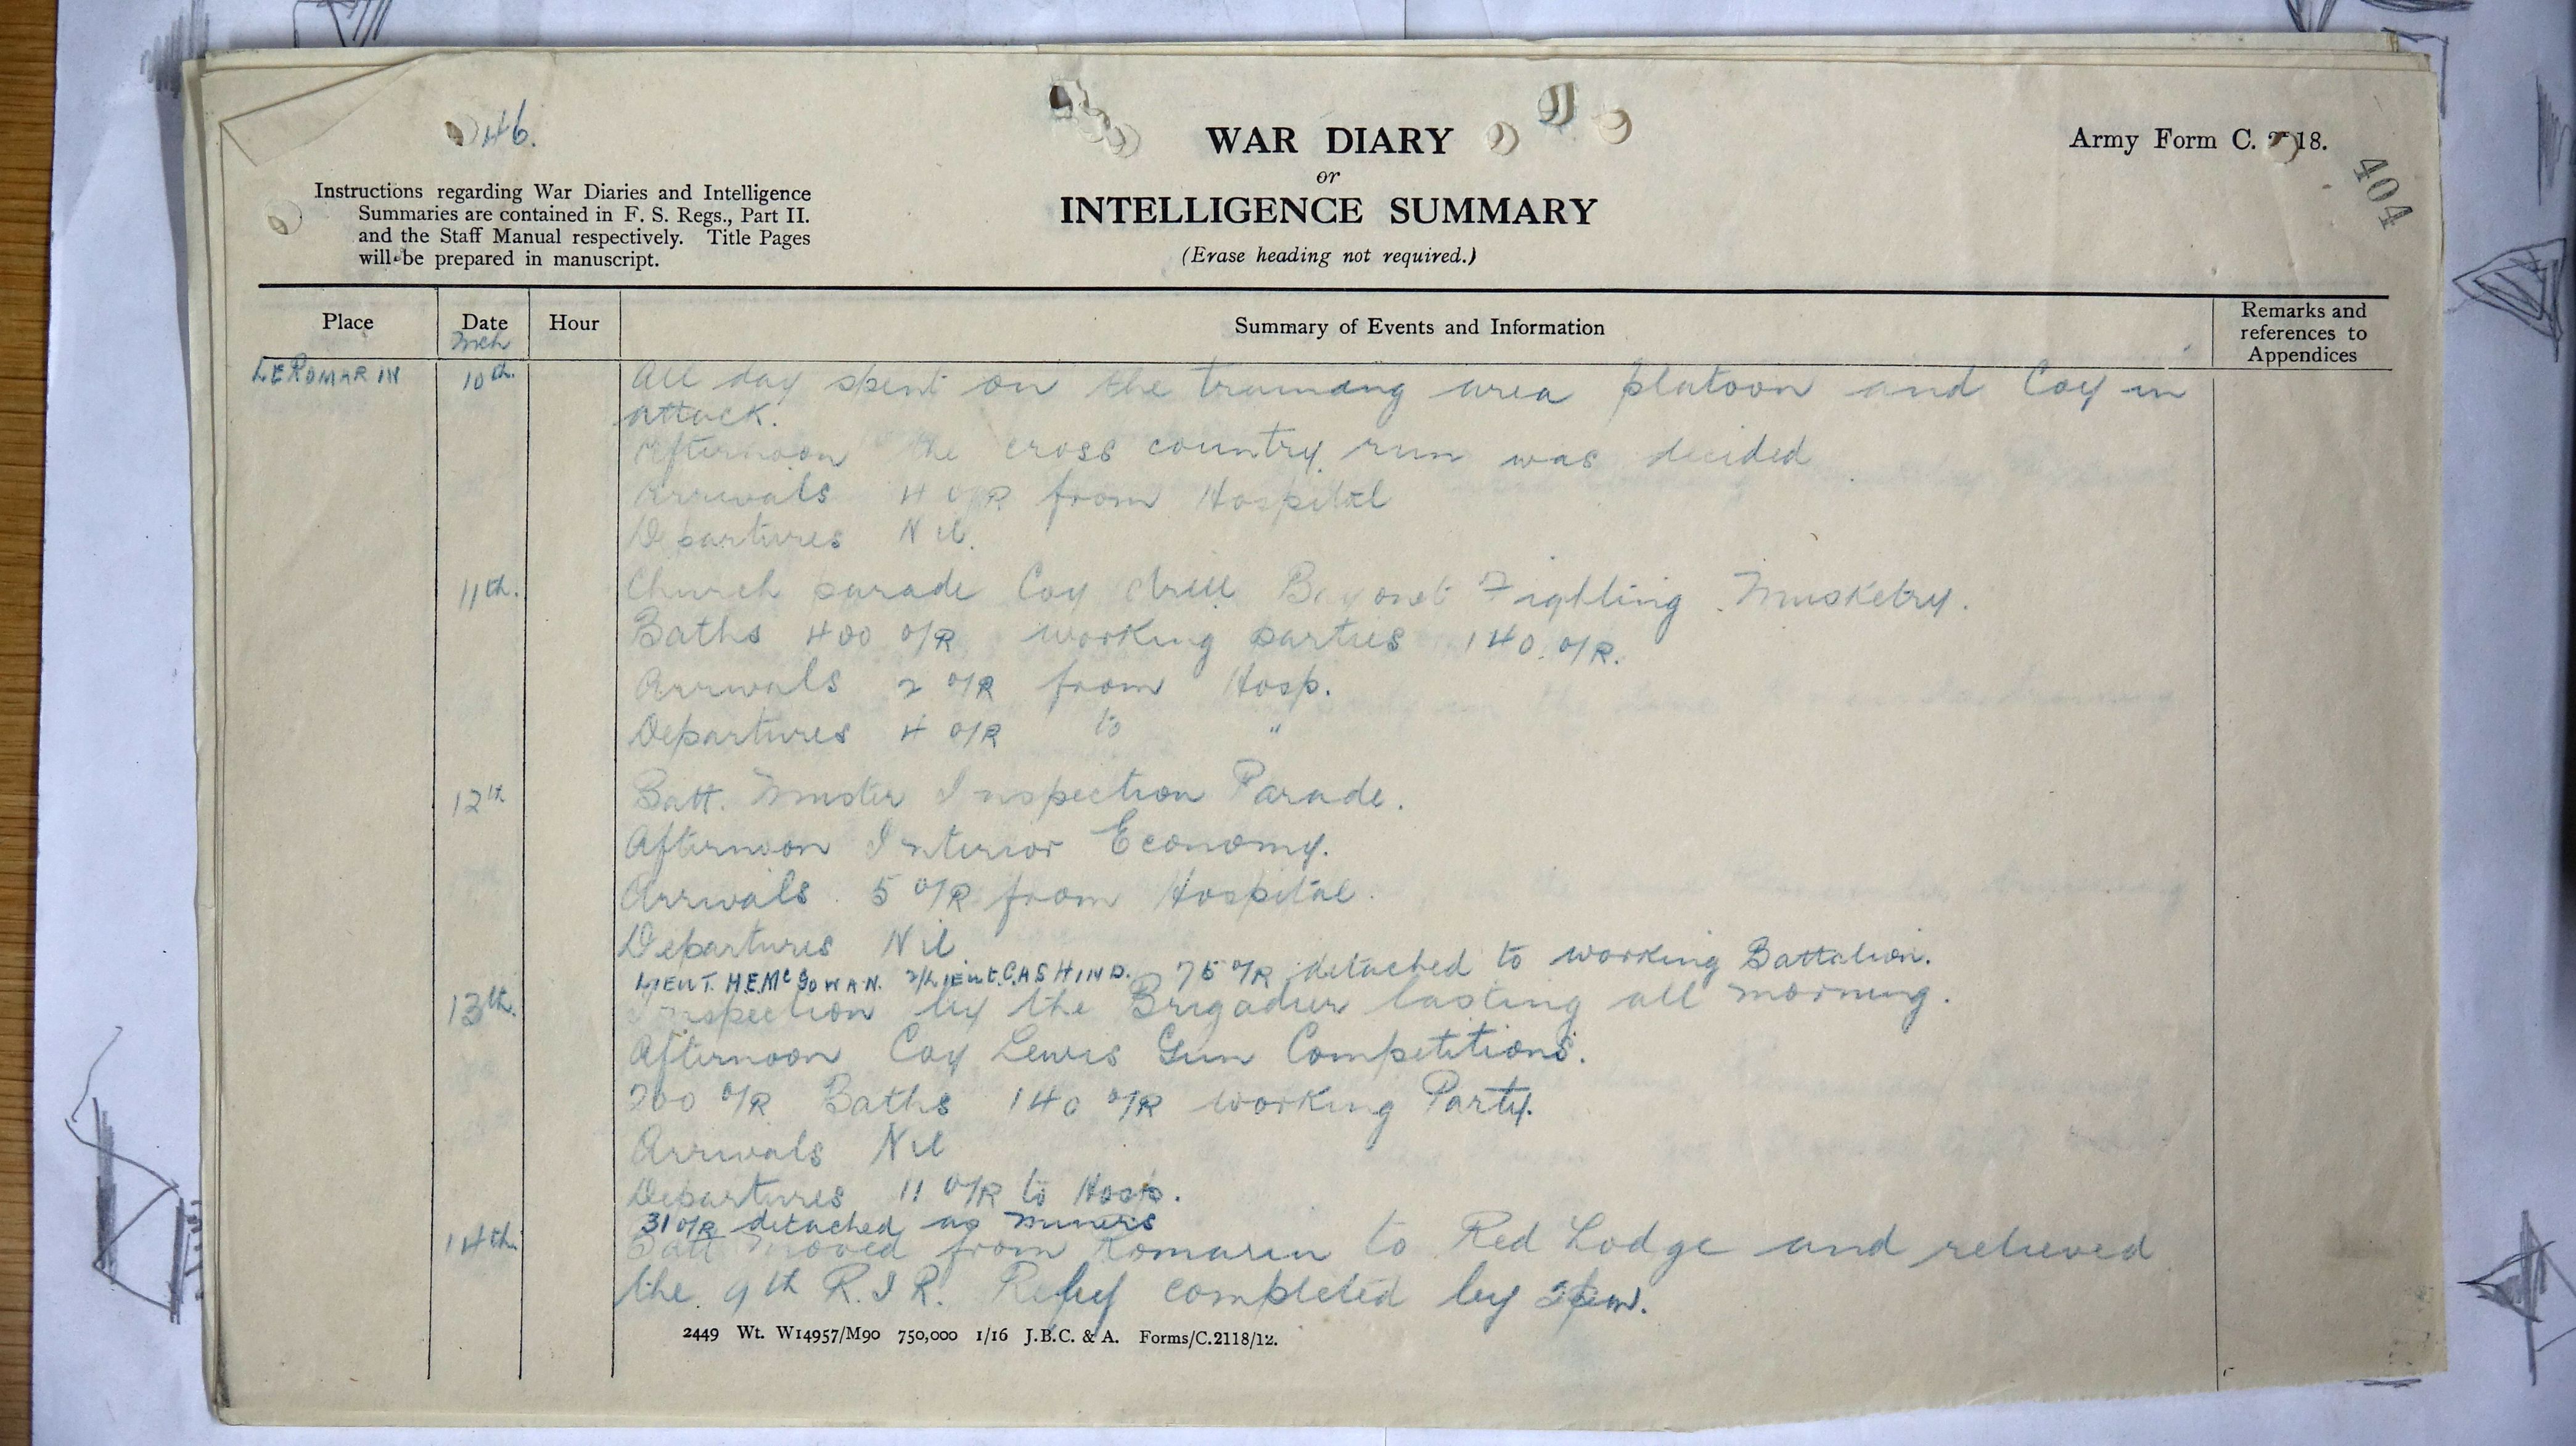 46.
WAR DIARY
or
INTELLIGENCE SUMMARY
(Erase heading not required.)
Army Form C. 2118.
404
Instructions regarding War Diaries and Intelligence
Summaries are contained in F. S. Regs., Part II.
and the Staff Manual respectively. Title Pages
will be prepared in manuscript.
Place Date Hour Summary of Events and Information Remarks and references to Appendices
Mch
LE ROMARIN 10th. All day spent on the training area platoon and Coy in
attack.
Afternoon the cross country run was decided
Arrivals 4 O/R from Hospital
Departures Nil.
11th. Church parade Coy drill Bayonet Fighting Musketry.
Baths 400 O/R working parties 140 O/R.
Arrivals 2 O/R from Hosp.
Departures 4 O/R to "
12th Batt. Muster Inspection Parade.
Afternoon Interior Economy.
Arrivals 5 O/R from Hospital.
Departures Nil
LIEUT. H.E. McGOWAN. 2/LIEUT. C.A. SHIND. 75 O/R detached to working Battalion.
13th. Inspection by the Brigadier lasting all morning.
Afternoon Coy Lewis Gun Competitions.
200 O/R Baths 140 O/R working Party.
Arrivals Nil
Departures 11 O/R to Hosp.
31 O/R detached as miners
14th. Batt moved from Romarin to Red Lodge and relieved
the 9th R.I.R. Relief completed by 2pm.
2449 Wt. W14957/M90 750,000 1/16 J.B.C. & A. Forms/C.2118/12.